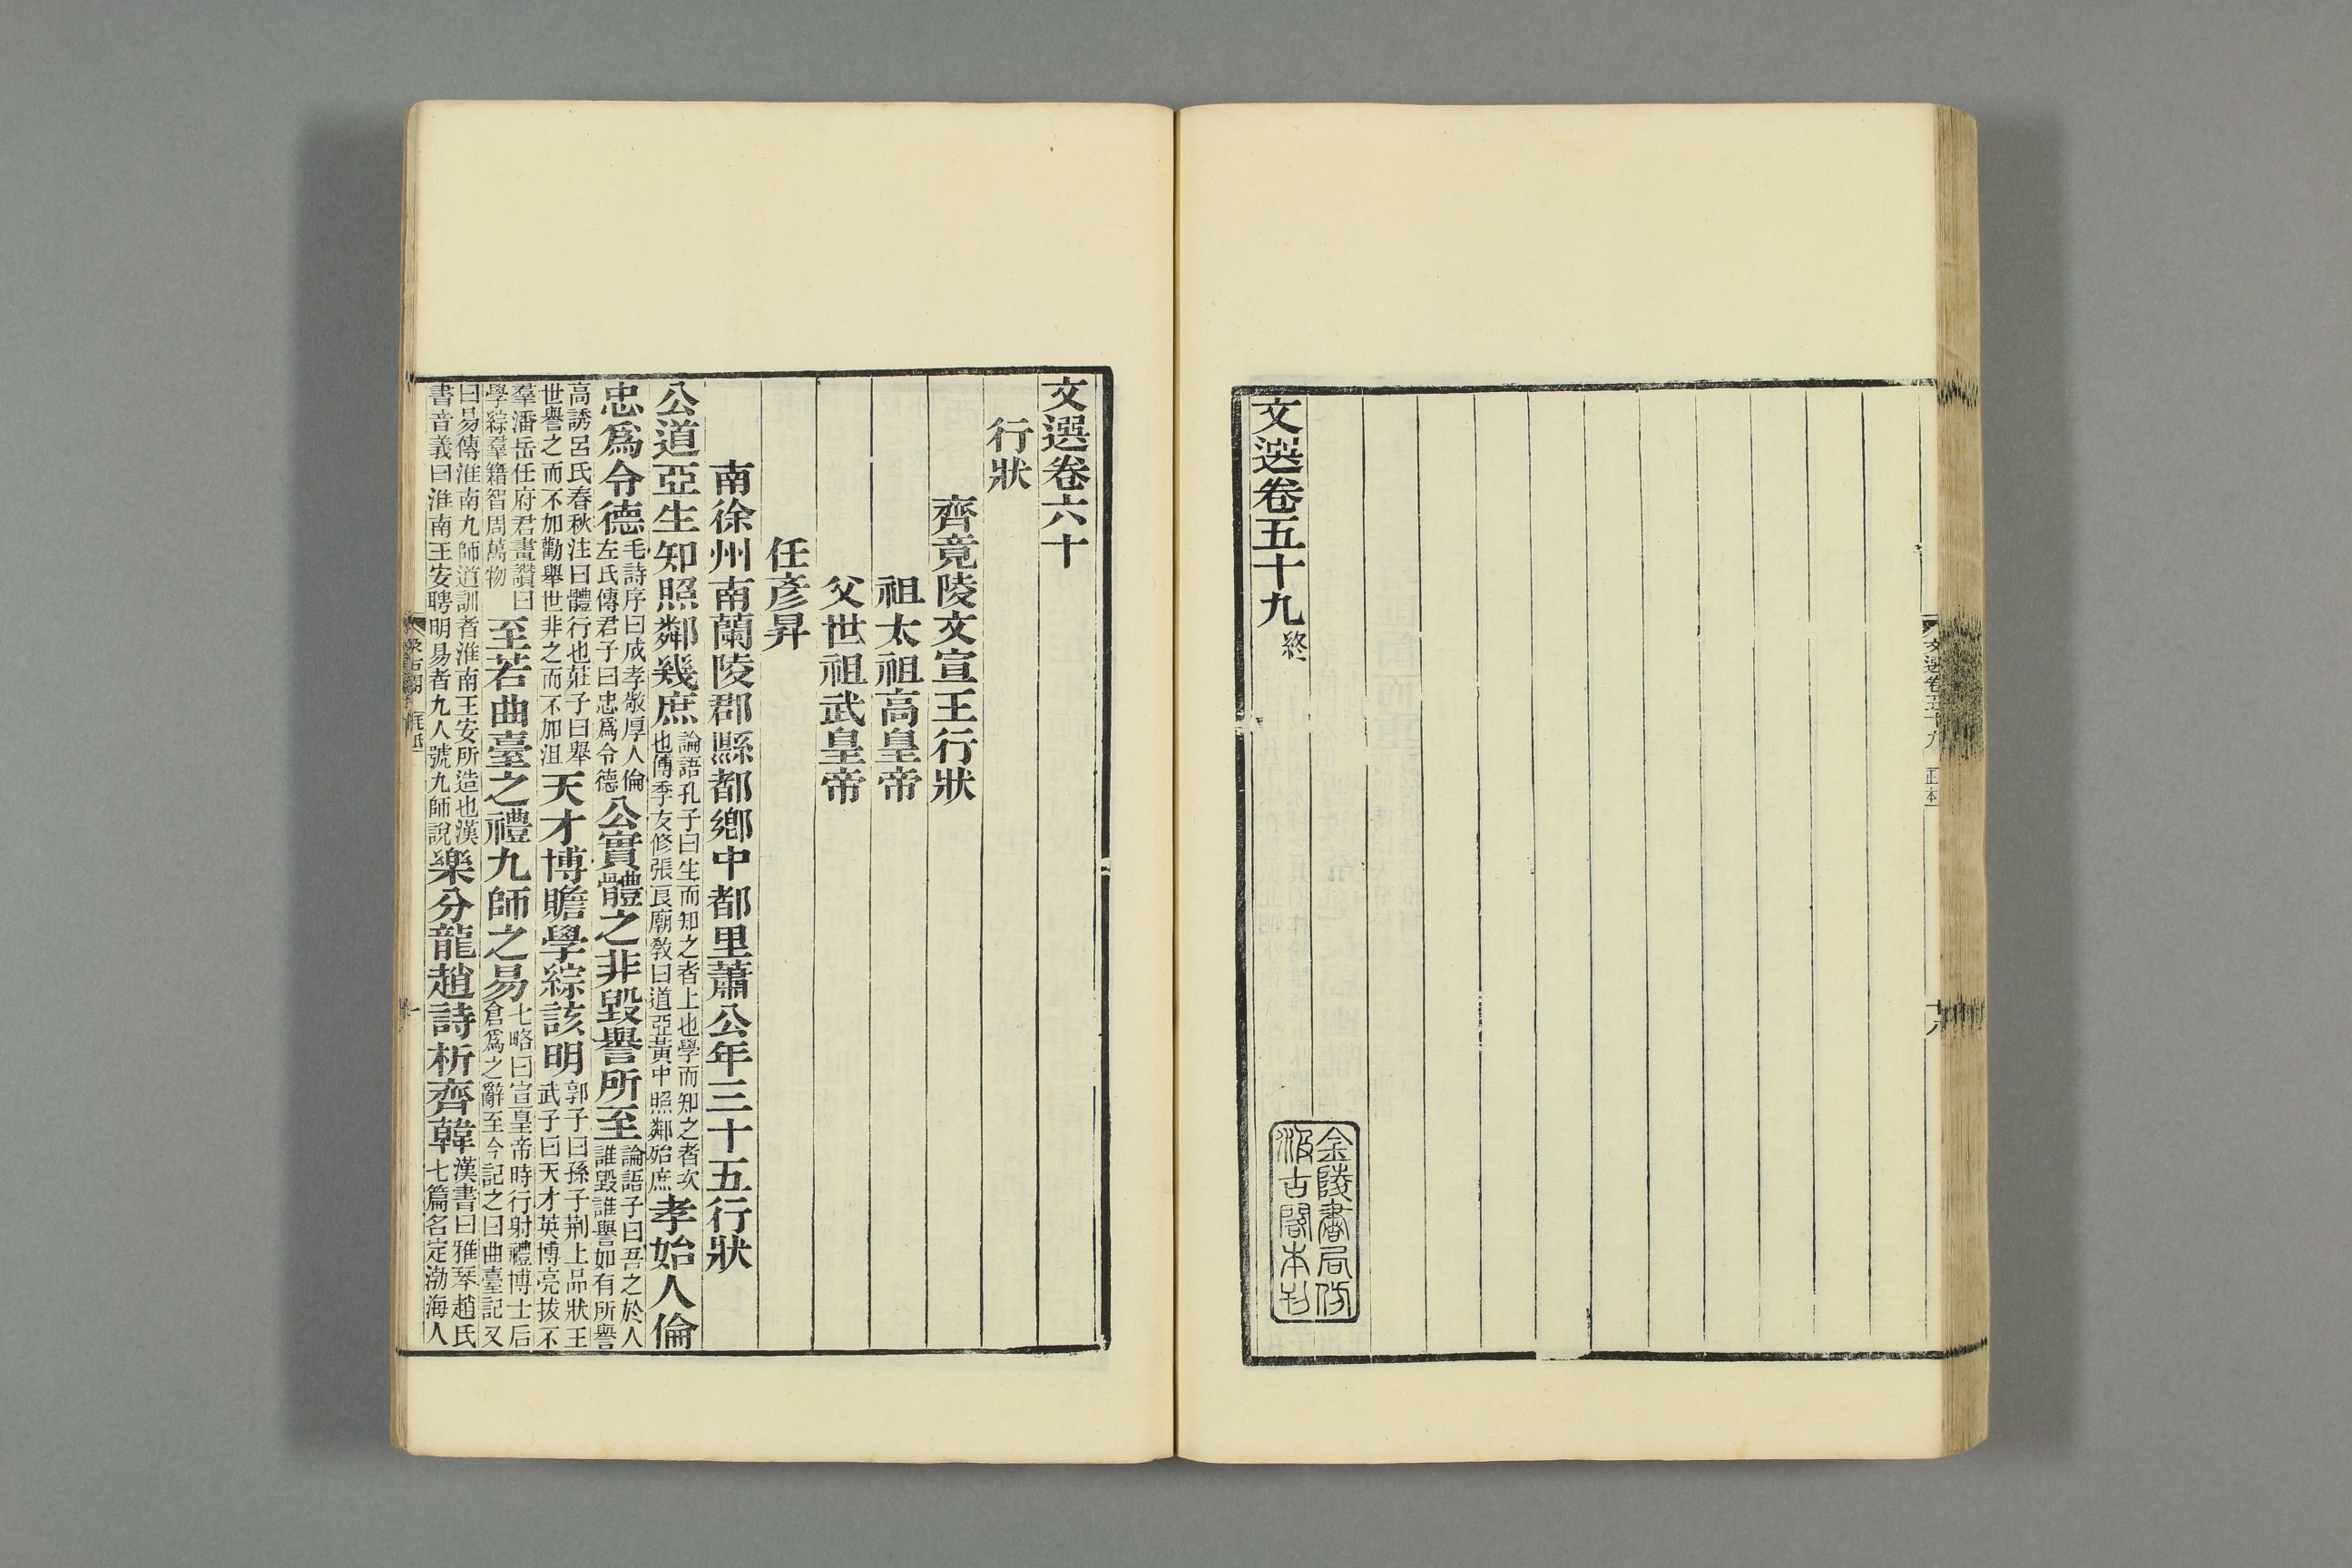 文選卷五十九
十八
文選卷五十九終
金陵書局仿
汲古閣本刊
文選卷六十
行狀
齊竟陵文宣王行狀
祖太祖高皇帝
父世祖武皇帝
任彥昇
南徐州南蘭陵郡縣都鄉中都里蕭公年三十五行狀
公道亞生知照鄰幾庶
論語孔子曰生而知之者上也學而知之者次
也傅季友修張良廟教曰道亞黃中照鄰殆庶
孝始人倫
忠爲令德
毛詩序曰成孝敬厚人倫
左氏傳君子曰忠爲令德
公實體之非毀譽所至
論語子曰吾之於人
誰毀誰譽如有所譽
高誘呂氏春秋注曰體行也莊子曰舉
世譽之而不加勸舉世非之而不加沮
天才博贍學綜該明
郭子曰孫子荆上品狀王
武子曰天才英博亮拔不
羣潘岳任府君畫讚曰
學綜羣籍智周萬物
至若曲臺之禮九師之易
七略曰宣皇帝時行射禮博士后
倉爲之辭至今記之曰曲臺記又
曰易傳淮南九師道訓者淮南王安所造也漢
書音義曰淮南王安聘明易者九人號九師說
樂分龍趙詩析齊韓
漢書曰雅琴趙氏
七篇名定渤海人
一